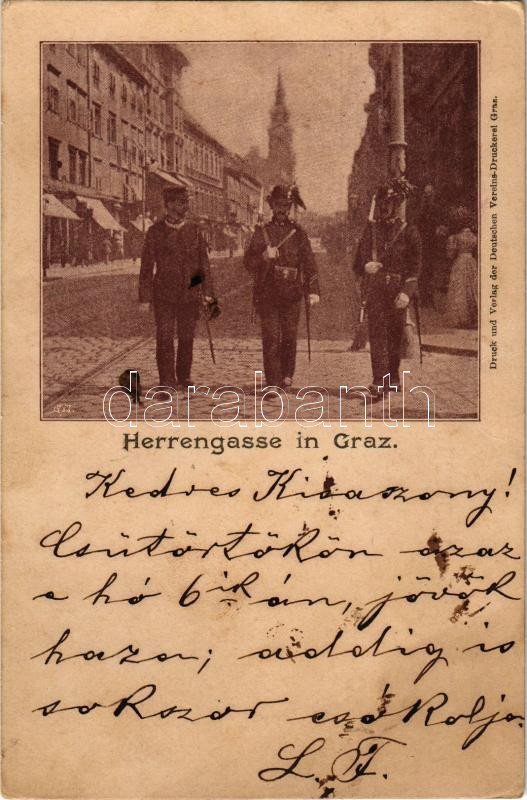 Druck und Verlag der Deutschen Vereins-Druckerei Graz.
darabanth
Herrengasse in Graz.
Kedves Kisaszony!
Csütörtökön azaz
e hó 6ik án, jövök
haza; addig is
sokszor csókolja
L. F.